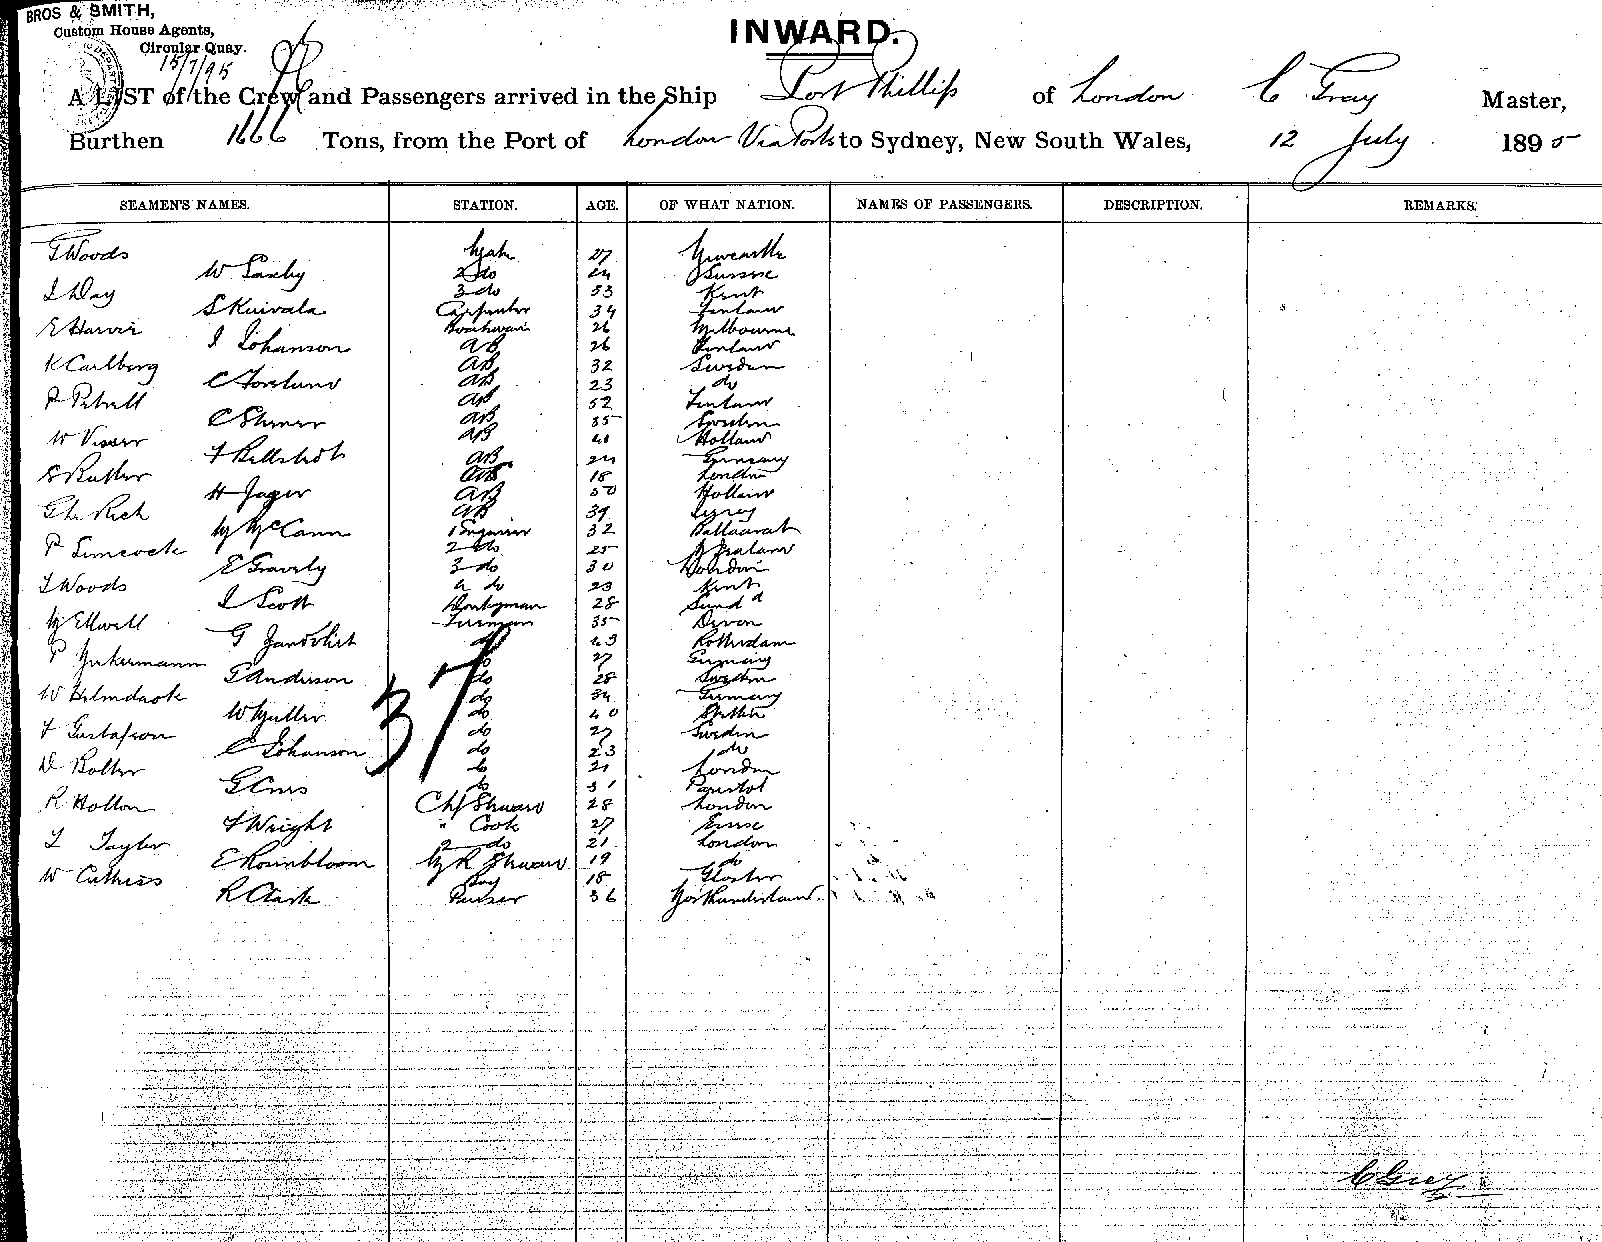 BROS & SMITH,
Custom House Agents,
Circular Quay.
15/7/95
INWARD.
A LIST of the Crew and Passengers arrived in the Ship Port Phillip of London C Gray Master,
Burthen 1666 Tons, from the Port of London Via Ports to Sydney, New South Wales, 12 July 1895
SEAMEN'S NAMES. STATION. AGE. OF WHAT NATION. NAMES OF PASSENGERS. DESCRIPTION. REMARKS.
G Woods Mate 27 Newcastle
W Saxby 2 do 24 Sussex
I Day 3 do 53 Kent
S Kuivala Carpenter 34 Finland
E Harvie Boatswain 26 Melbourne
I Johanson AB 26 Finland
K Carlberg AB 32 Sweden
C Forslund AB 23 do
P Petrell AB 52 Finland
C AB 35 Sweden
W Visser AB 41 Holland
F AB 24 Germany
S Rutter AB 18 London
H Jager AB 50 Holland
Rich AB 39
M McCann 1 Engineer 32 Ballaarat
P Simcock 2 do 25 N Zealand
E Gravely 3 do 30 London
T Woods 4 do 23 Kent
I Scott Donkeyman 28 Sund d
M Ellwell Fireman 35 Devon
G do 43 Rotterdam
P do 27 Germany
G Anderson do 28 Sweden
W do 34 Germany
W Muller do 40 Stettin
F Gustafson do 27 Sweden
C Johanson do 23 do
D Bolter do 21 London
G do 31 Bristol
R Holton Chf Steward 28 London
F Wright " Cook 27
T Taylor 2 do 21 London
E Rosinbloom M R Steward 19 do
W Boy 18 Gloster
R Clark Purser 36 Northumberland
37
C Gray